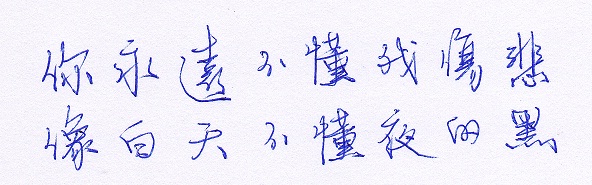 你永遠不懂我傷悲
像白天不懂夜的黑